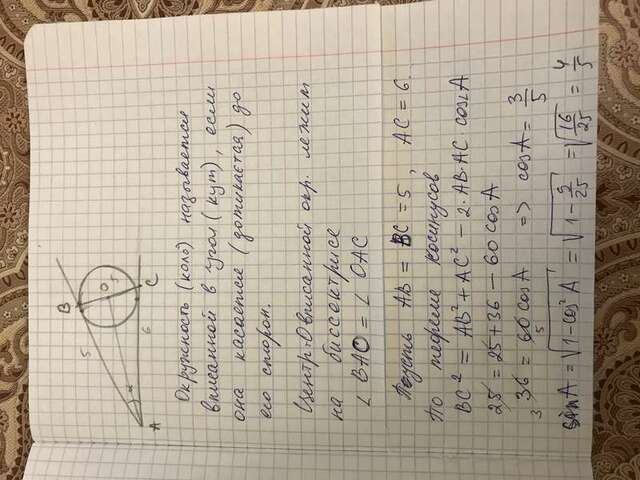 B
5
O
5
α
A
6
C
Окружность (коло) называется
вписанной в угол (кут), если
она касается (дотикается) до
его сторон.
Центр-О вписанной окр. лежит
на биссектрисе
∠ BAO = ∠ OAC
Пусть AB = BC = 5, AC = 6.
По теореме косинусов
BC² = AB² + AC² - 2·AB·AC·cos∠A
25 = 25 + 36 - 60 cos A
3 36 = 60 cos A => cos A = 3/5
5
sin A = √(1-cos² A) = √(1 - 9/25) = √(16/25) = 4/5